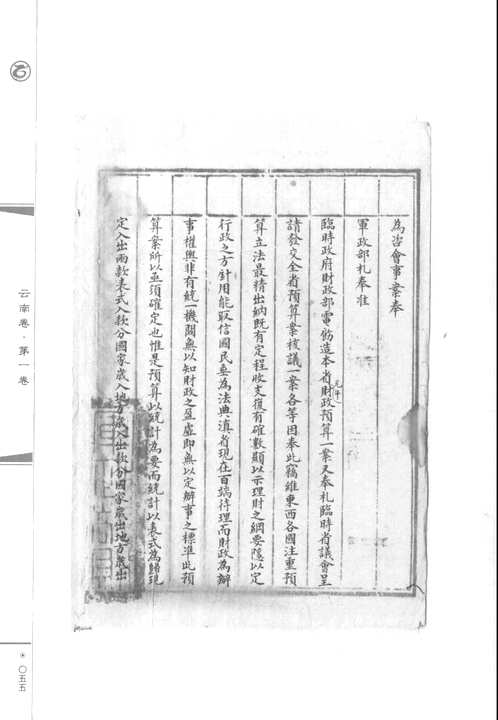 為咨會事案奉
軍政部札奉准
臨時政府財政部電飭造本省財政預算一案又奉札臨時省議會呈
元年
請發交全省預算案核議一案各等因奉此竊維東西各國注重預
算立法最精出納既有定程收支復有確數顯以示理財之綱要隱以定
行政之方針用能取信國民垂為法典滇省現在百端待理而財政為辦
事權輿非有統一機關無以知財政之盈虛即無以定辦事之標準此預
算案所以亟須確定也惟是預算以統計為要而統計以表式為歸現
定入出兩款表式入款分國家歲入地方歲入出款分國家歲出地方歲出
云南卷·第一卷
*〇五五